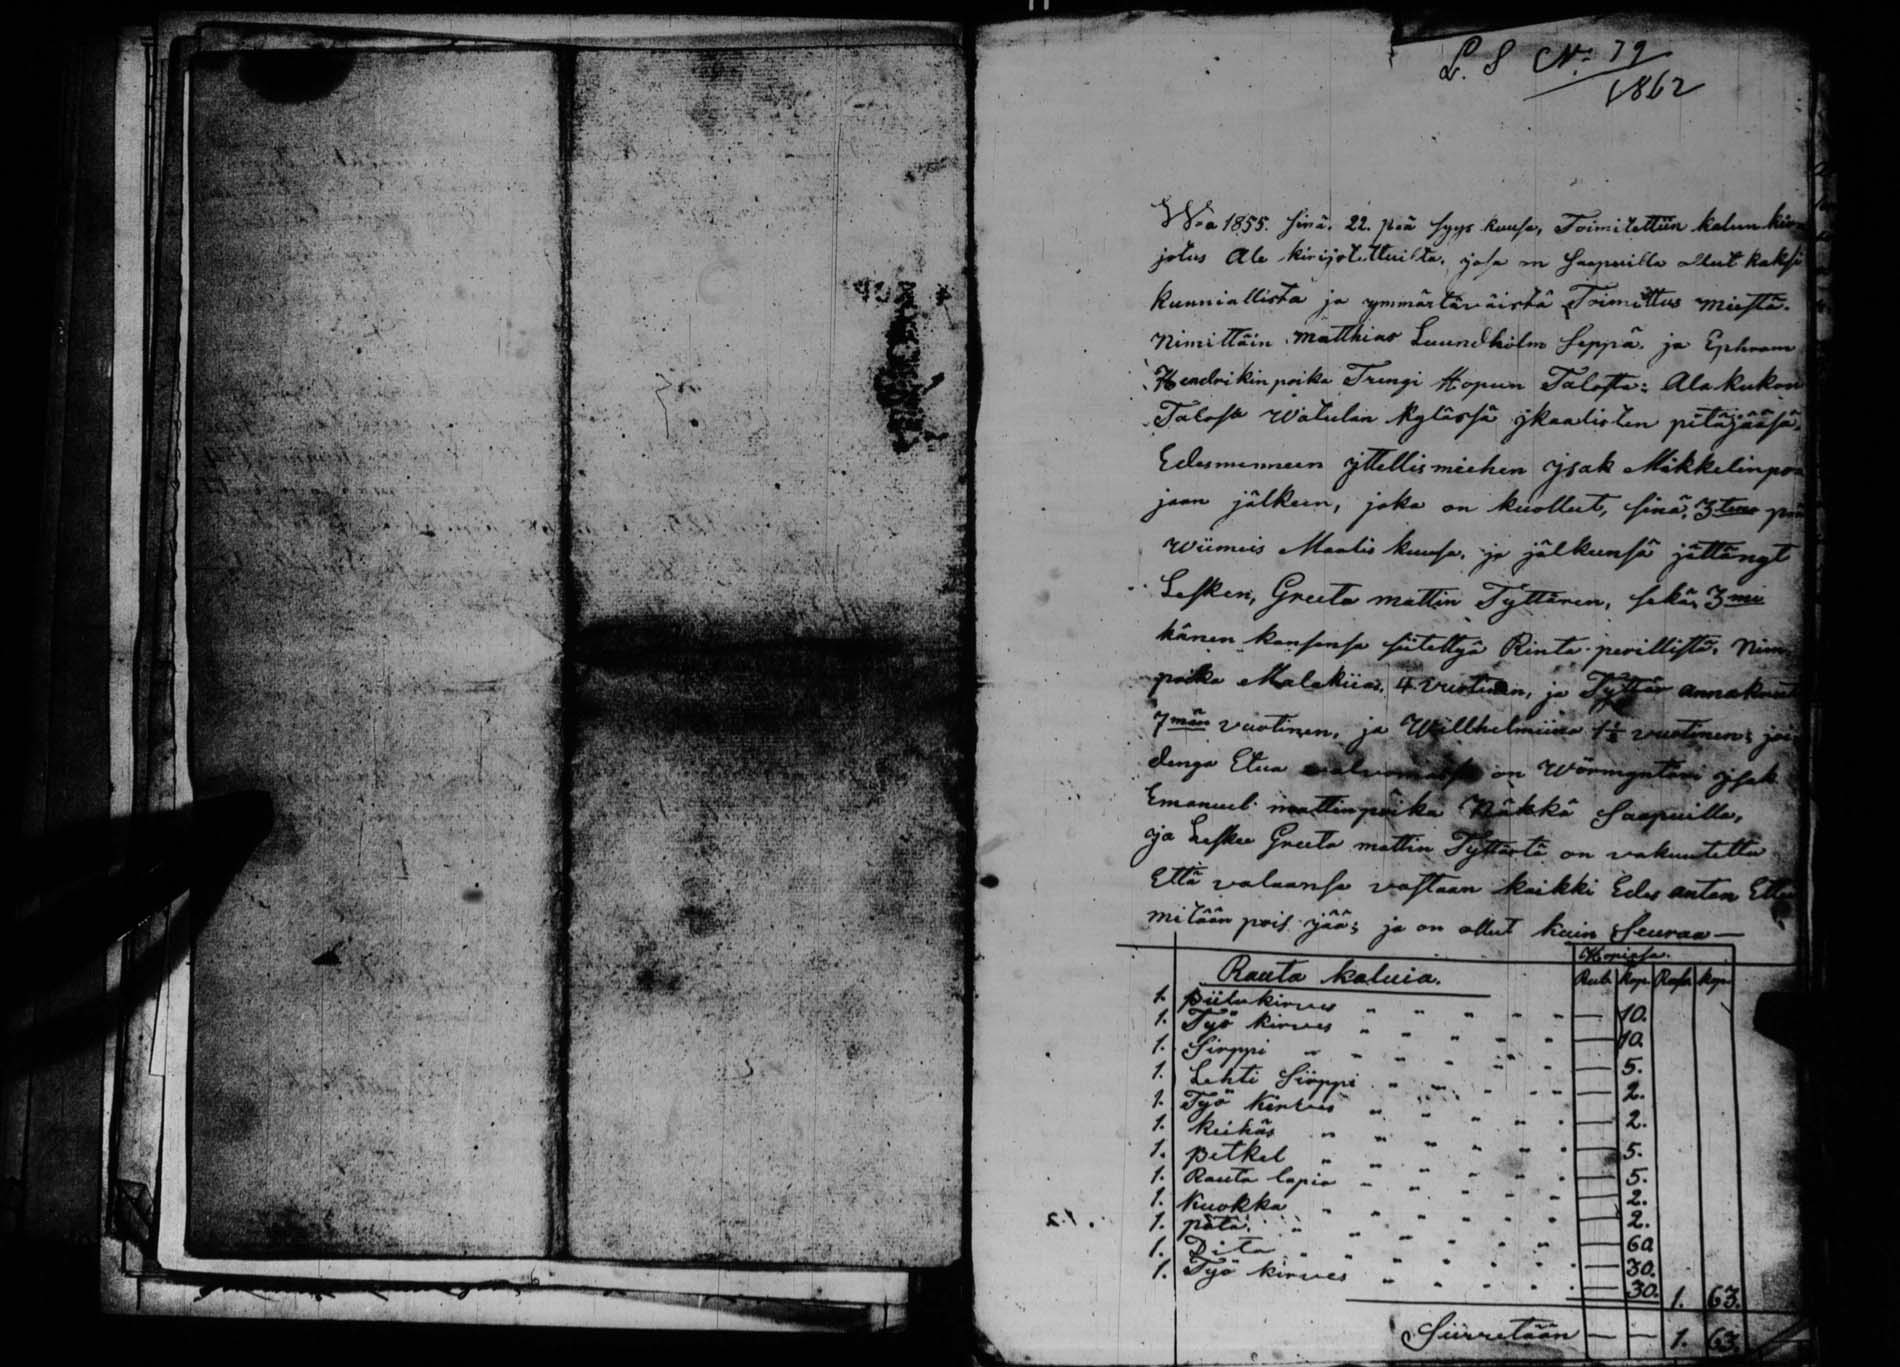 L. S No 79
1862
Wna 1855. sinä. 22. pnä syys kuusa, Toimitettiin kalun kir
joitus Ale kirijotettuilta, josa on saapuilla ollut kaksi
kunniallista ja ymmärtäväistä Toimittus miestä.
Nimittäin Matthias Luundholm Seppä. ja Ephram
Hendrikin poika Trengi Hopun Talosta: Ala kukon
Talosa Watulan kylässä jkaalisten pitäjääsä,
Edesmenneen yttellis miehen jsak Mikkelinpo
jaan jälkeen, joka on kuollut, sinä, 3tena pnä
wiimeis Maalis kuusa, ja jälkeensä jättänyt
Lesken, Greeta mattin Tyttären, sekä, 3me
hänen kansansa siitettyä Rinta perillistä, Nim
poika Malakias, 4 vuotinen, ja Tyttär annakreet
7män vuotinen, ja Willhelmiina 1½ vuotinen; joi
denga Etua valvomassa on Wörmyntäri jsak
Emanuel mattinpoika Näkkä Saapuilla,
ja Leskee Greeta mattin Tyttärtä on vakuutettu
Että valaansa vastaan kaikki Edes antan Ettei
mitään pois jää; ja on ollut kuin Seuraa —
Hopiasa.
Rauta kaluia. Rubl kop. Rupl. kop.
1. piilukirves — 10.
1. Työ kirves — 10.
1. Sirppi — 5.
1. Lehti Sirppi — 2.
1. Työ kirves — 2.
1. keihäs — 5.
1. petkel — 5.
1. Rauta lapio — 2.
1. kuokka — 2.
1. pata — 60.
1. Dita — 30.
1. Työ kirves — 30. 1. 63.
Siirretään — — 1. 63.